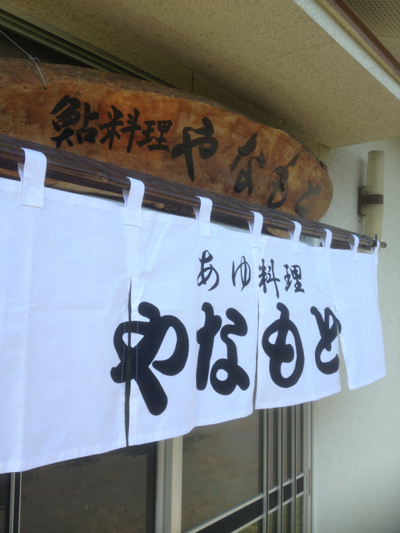 鮎料理やなもと
あゆ料理
やなもと